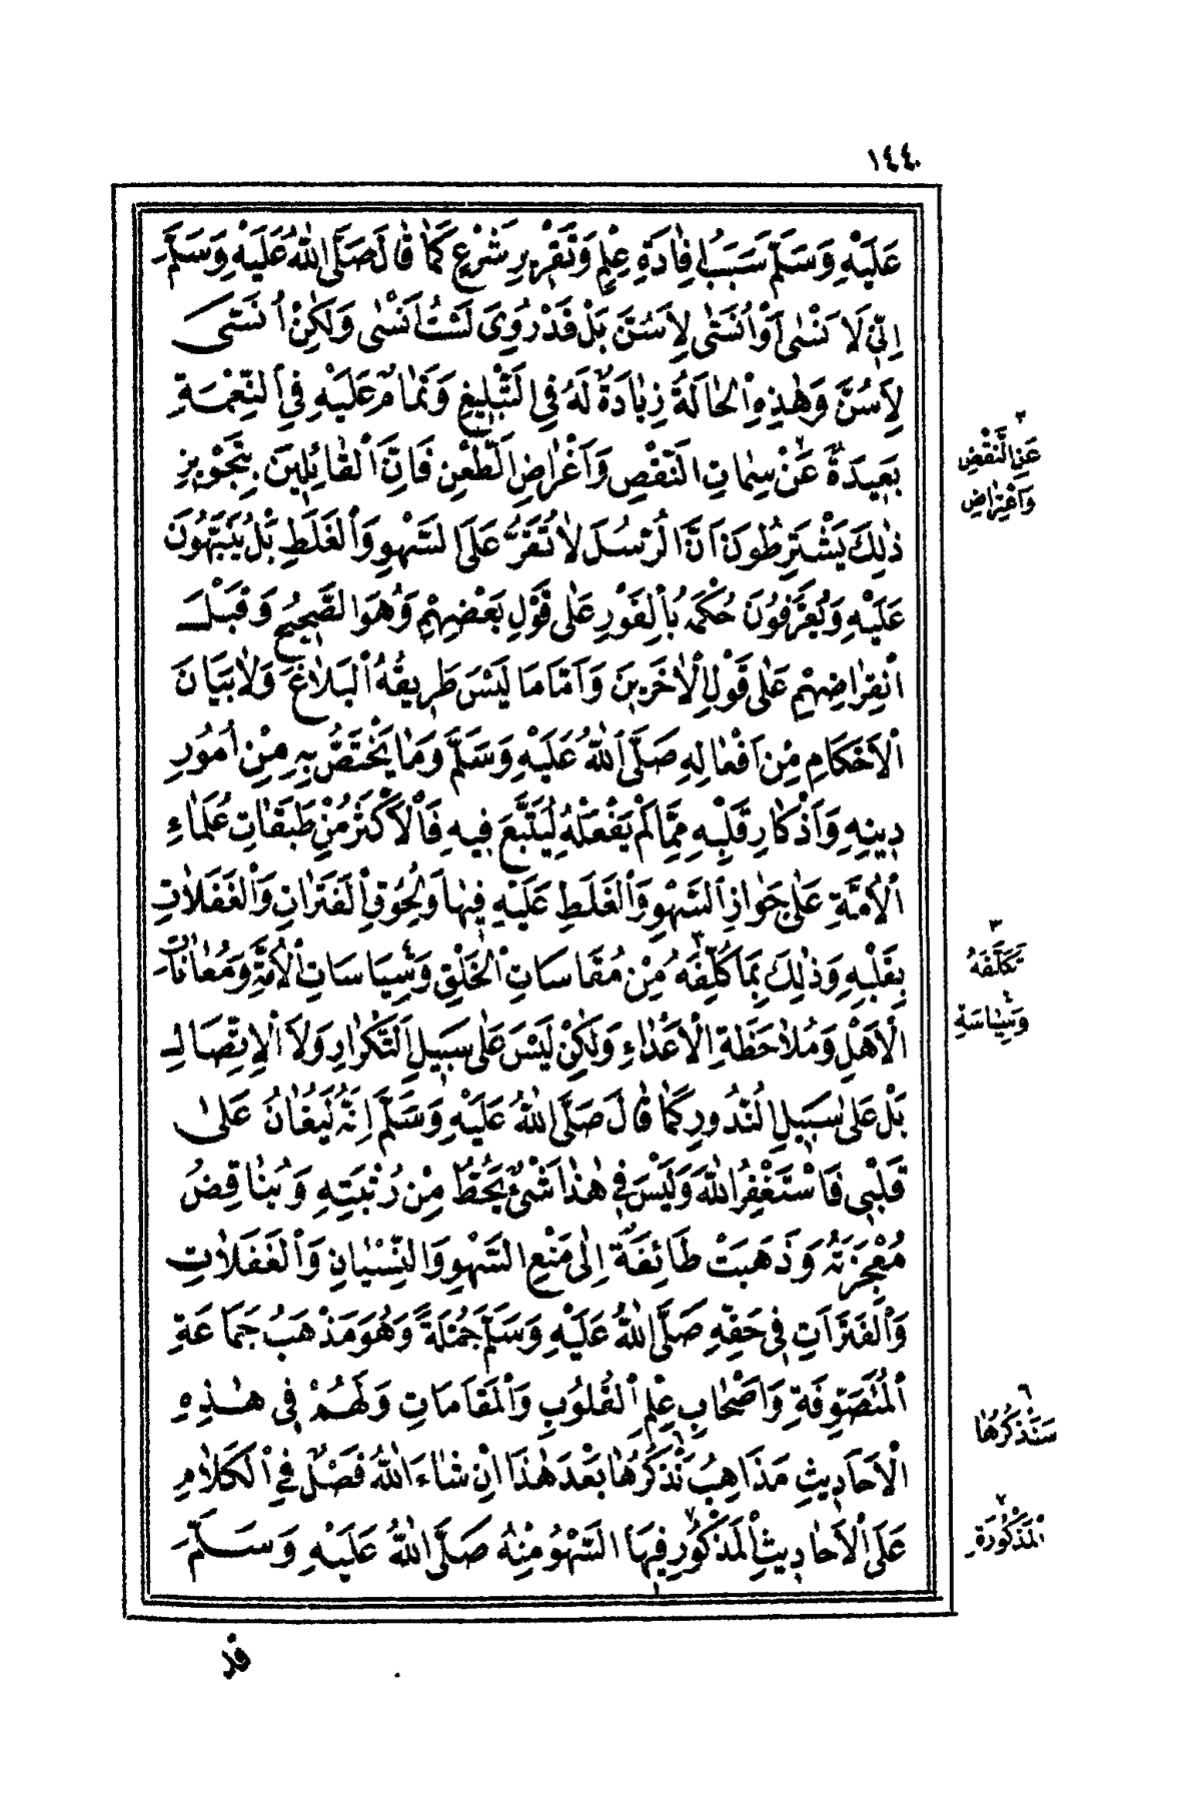 ١٤٤
عَلَيْهِ وَسَلَّمَ سَبَبُ اِفَادَةِ عِلْمٍ وَتَقْرِيرِ شَرْعٍ كَمَا قَالَ صَلَّى اللهُ عَلَيْهِ وَسَلَّمَ
اِنِّي لَاَنْسٰى اَوْ اُنَسّٰى لِاَسُنَّ بَلْ قَدْ رُوِيَ لَسْتُ اَنْسٰى وَلٰكِنْ اُنَسّٰى
لِاَسُنَّ وَهٰذِهِ الْحَالَةُ زِيَادَةٌ لَهُ فِي التَّبْلِيغِ وَتَمَامٌ عَلَيْهِ فِي النِّعْمَةِ
بَعِيدَةٌ عَنْ سِمَاتِ النَّقْصِ وَاَغْرَاضِ الطَّعْنِ فَاِنَّ الْقَائِلِينَ بِتَجْوِيزِ
ذٰلِكَ يَشْتَرِطُونَ اَنَّ الرُّسُلَ لَا تُقَرُّ عَلَى السَّهْوِ وَالْغَلَطِ بَلْ يُنَبَّهُونَ
عَلَيْهِ وَيُعَرَّفُونَ حُكْمَهُ بِالْفَوْرِ عَلٰى قَوْلِ بَعْضِهِمْ وَهُوَ الصَّحِيحُ وَقَبْلَ
انْقِرَاضِهِمْ عَلٰى قَوْلِ الْاٰخَرِينَ وَاَمَّا مَا لَيْسَ طَرِيقُهُ الْبَلَاغَ وَلَا بَيَانَ
الْاَحْكَامِ مِنْ اَفْعَالِهِ صَلَّى اللهُ عَلَيْهِ وَسَلَّمَ وَمَا يَخْتَصُّ بِهِ مِنْ اُمُورِ
دِينِهِ وَاَذْكَارِ قَلْبِهِ مِمَّا لَمْ يَفْعَلْهُ لِيُتَّبَعَ فِيهِ فَالْاَكْثَرُ مِنْ طَبَقَاتِ عُلَمَاءِ
الْاُمَّةِ عَلٰى جَوَازِ السَّهْوِ وَالْغَلَطِ عَلَيْهِ فِيهَا وَلُحُوقِ الْفَتَرَاتِ وَالْغَفَلَاتِ
بِقَلْبِهِ وَذٰلِكَ بِمَا كُلِّفَهُ مِنْ مُقَاسَاتِ الْخَلْقِ وَسِيَاسَاتِ الْاُمَّةِ وَمُعَانَاتِ
الْاَهْلِ وَمُلَاحَظَةِ الْاَعْدَاءِ وَلٰكِنْ لَيْسَ عَلٰى سَبِيلِ التَّكْرَارِ وَلَا الْاِتِّصَالِ
بَلْ عَلٰى سَبِيلِ النُّدُورِ كَمَا قَالَ صَلَّى اللهُ عَلَيْهِ وَسَلَّمَ اِنَّهُ لَيُغَانُ عَلٰى
قَلْبِي فَاَسْتَغْفِرُ اللهَ وَلَيْسَ فِي هٰذَا شَيْءٌ يَحُطُّ مِنْ رُتْبَتِهِ وَيُنَاقِضُ
مُعْجِزَتَهُ وَذَهَبَتْ طَائِفَةٌ اِلٰى مَنْعِ السَّهْوِ وَالنِّسْيَانِ وَالْغَفَلَاتِ
وَالْفَتَرَاتِ فِي حَقِّهِ صَلَّى اللهُ عَلَيْهِ وَسَلَّمَ جُمْلَةً وَهُوَ مَذْهَبُ جَمَاعَةِ
الْمُتَصَوِّفَةِ وَاَصْحَابِ عِلْمِ الْقُلُوبِ وَالْمَقَامَاتِ وَلَهُمْ فِي هٰذِهِ
الْاَحَادِيثِ مَذَاهِبُ نَذْكُرُهَا بَعْدَ هٰذَا اِنْ شَاءَ اللهُ فَصْلٌ فِي الْكَلَامِ
عَلَى الْاَحَادِيثِ الْمَذْكُورِ فِيهَا السَّهْوُ مِنْهُ صَلَّى اللهُ عَلَيْهِ وَسَلَّمَ
٢
عَنِ النَّقْصِ
وَاعْتِرَاضِ
٣
تَكَلَّفَهُ
٤
وَسِيَاسَةِ
٦
سَنَذْكُرُهَا
٧
الْمَذْكُورَةِ
قد